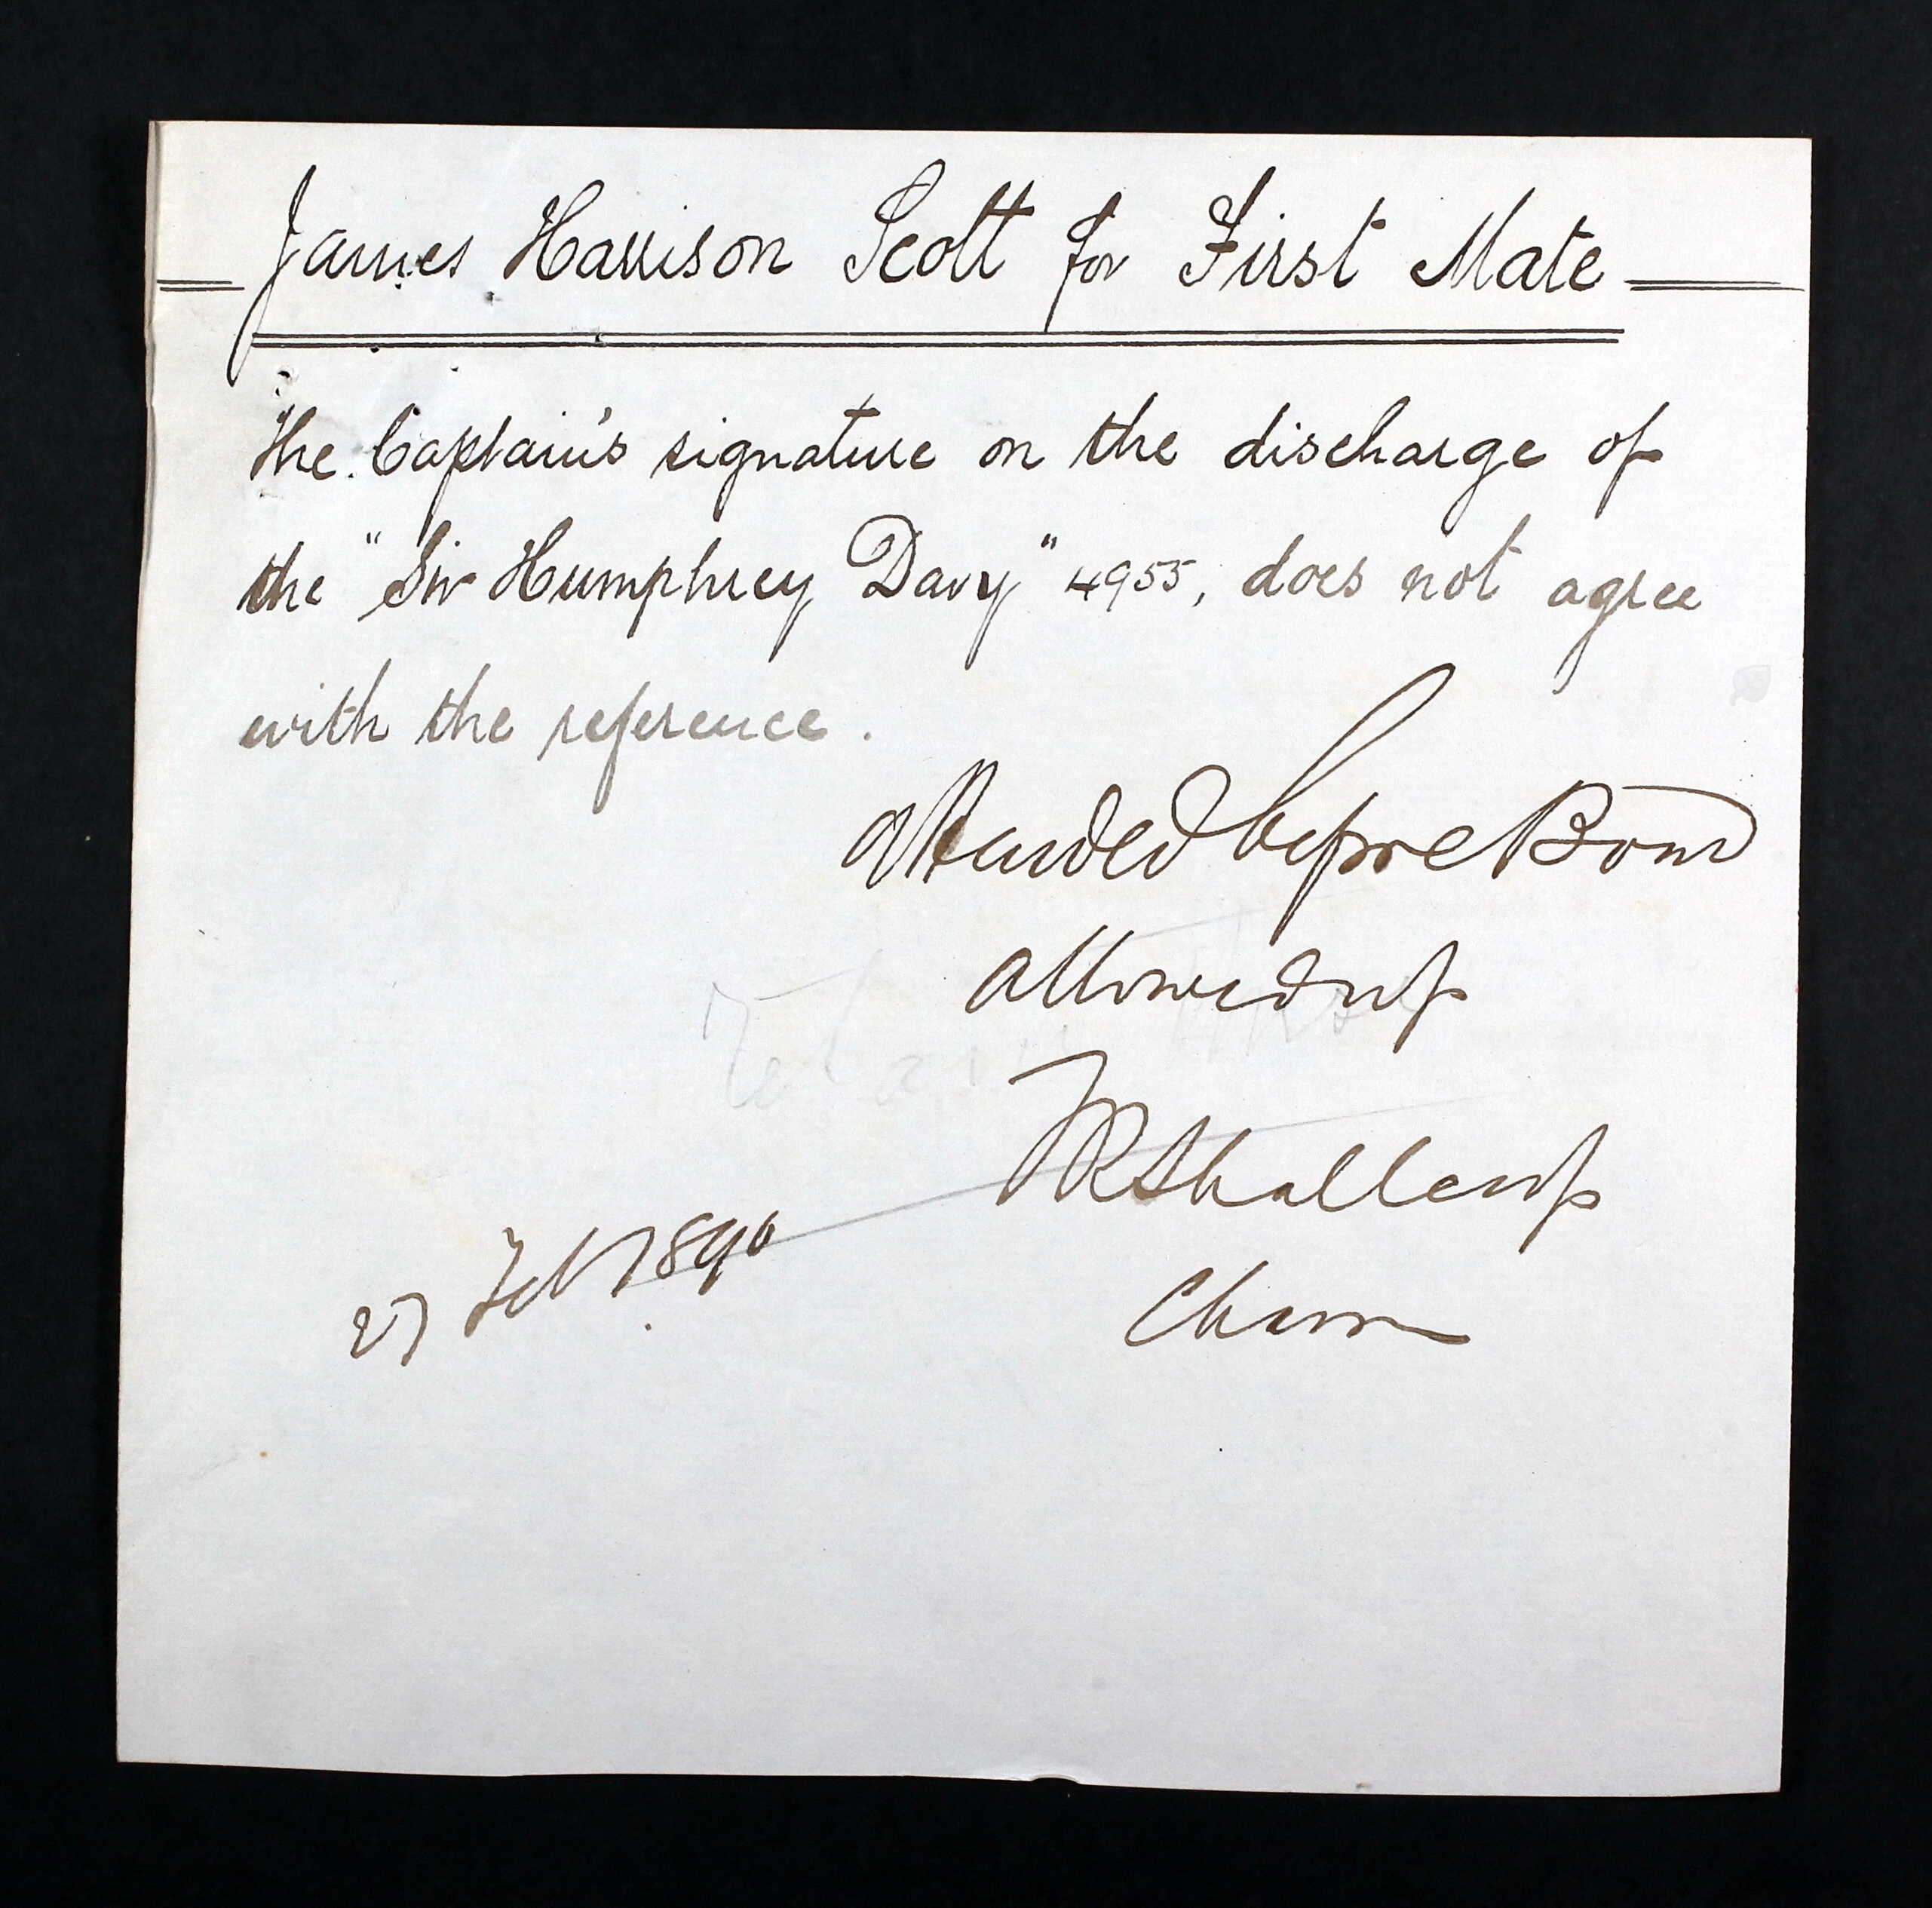 James Harrison Scott for First Mate
The Captain's signature on the discharge of
the "Sir Humphrey Davy" 4955, does not agree
with the reference.
Attended before Board
allowed up
Chairn
27 Feb 1890